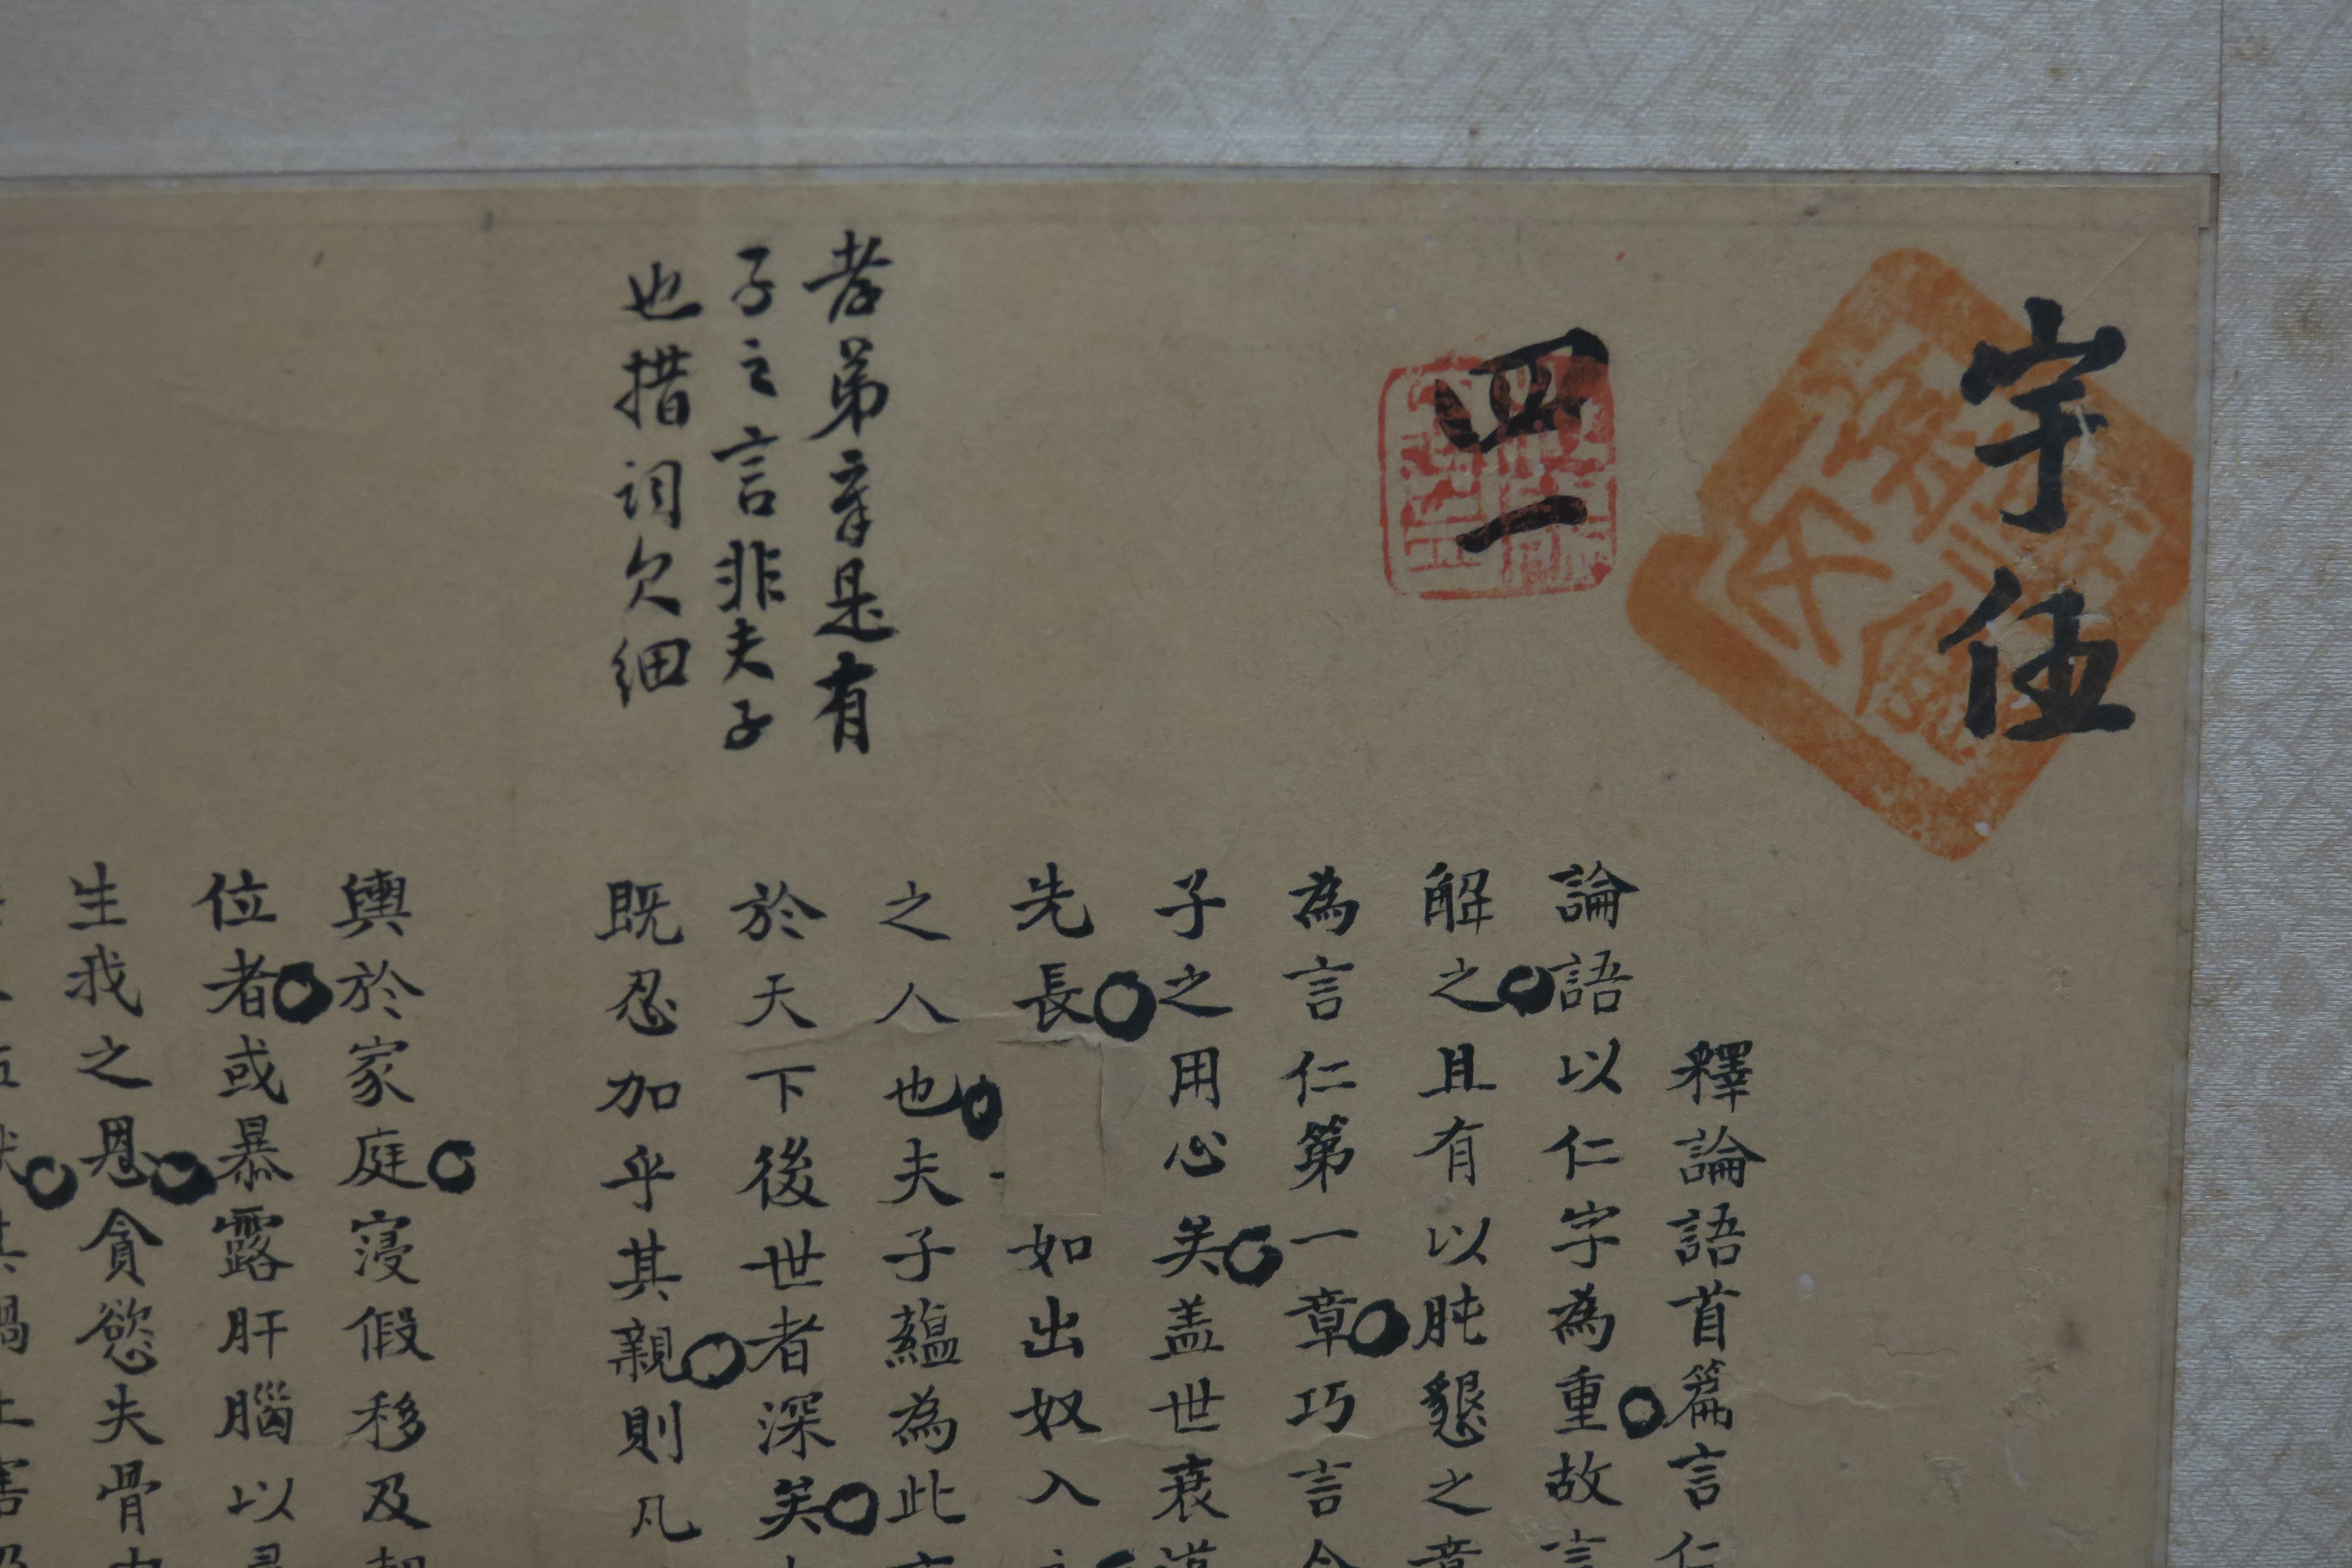 宇伍
四一
孝弟章是有
子之言非夫子
也措詞欠細
釋論語首篇言仁
論語以仁字為重故言
解之且有以肫懇之章
為言仁第一章巧言令
子之用心矣盖世衰道
先長如出奴入主
之人也夫子蘊為此
於天下後世者深矣
既忍加乎其親則凡
輿於家庭寖假移及朝
位者或暴露肝腦以
生我之恩貪慾失骨肉